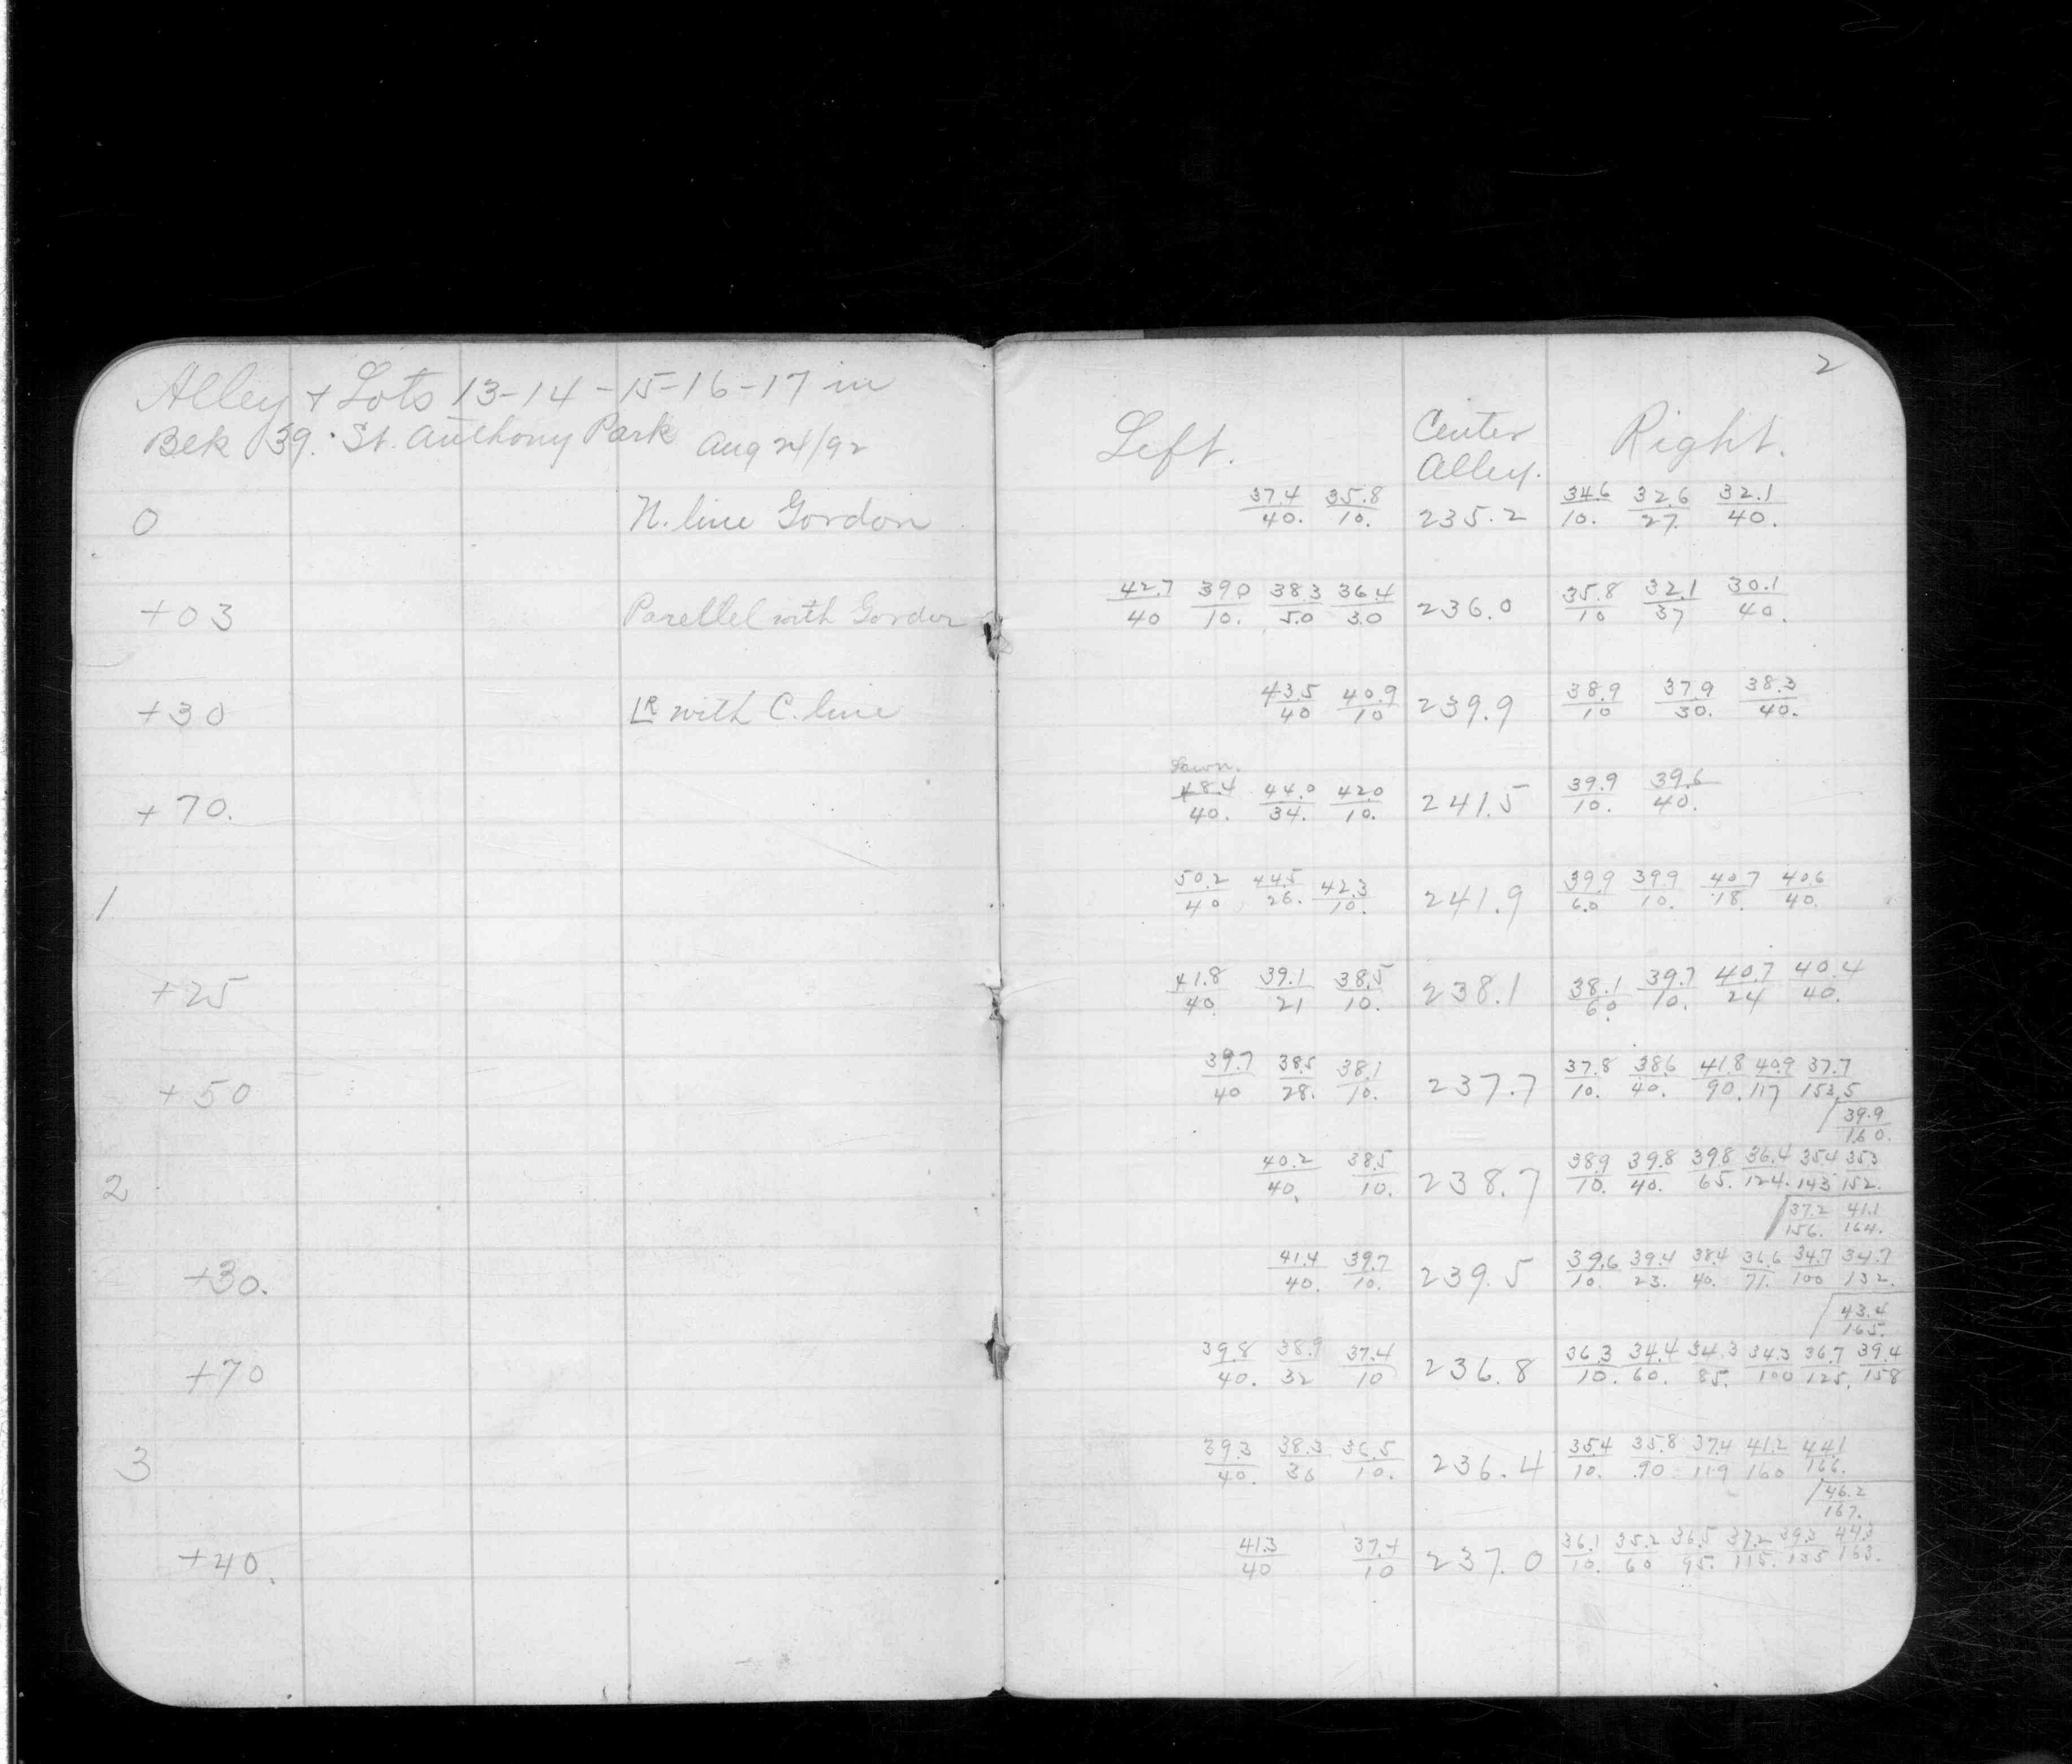 Alley + Lots 13-14-15-16-17 in
Blk 39. St. Anthony Park Aug 24/92
2
Left. Center Alley. Right.
0 N. line Gordon 37.4/40. 35.8/10. 235.2 34.6/10. 32.6/27. 32.1/40.
+03 Parellel with Gordon 42.7/40 39.0/10. 38.3/5.0 36.4/3.0 236.0 35.8/10 32.1/37 30.1/40.
+30 LR with C. line 43.5/40 40.9/10 239.9 38.9/10 37.9/30. 38.3/40.
Lawn.
+70. 48.4/40. 44.0/34. 42.0/10. 241.5 39.9/10. 39.6/40.
1 50.2/40 44.5/26. 42.3/10. 241.9 39.9/6.0 39.9/10. 40.7/18. 40.6/40.
+25 41.8/40. 39.1/21 38.5/10. 238.1 38.1/6.0 39.7/10. 40.7/24 40.4/40.
+50 39.7/40 38.5/28. 38.1/10. 237.7 37.8/10. 38.6/40. 41.8/90. 40.9/117 37.7/153.5
39.9/160.
2 40.2/40. 38.5/10. 238.7 38.9/10. 39.8/40. 39.8/65. 36.4/124. 35.4/143 35.3/152.
37.2/156. 41.1/164.
+30. 41.4/40. 39.7/10. 239.5 39.6/10. 39.4/23. 38.4/40. 36.6/71. 34.7/100 34.7/132.
43.4/165.
+70 39.8/40. 38.9/32 37.4/10 236.8 36.3/10. 34.4/60. 34.3/85. 34.3/100 36.7/125. 39.4/158
3 39.3/40. 38.3/36 36.5/10. 236.4 35.4/10. 35.8/90 37.4/119 41.2/160 44.1/166.
46.2/167.
+40. 41.3/40 37.4/10 237.0 36.1/10. 35.2/60 36.5/95. 37.2/115. 39.3/135 44.3/163.